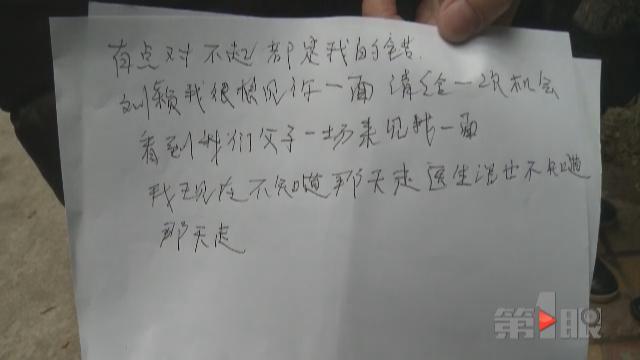 有点对不起都是我的错.
刘颖我很想见你一面请给一次机会
看到我们父子一场来见我一面
我现在不知道那天走医生说也不知道
那天走
第1眼